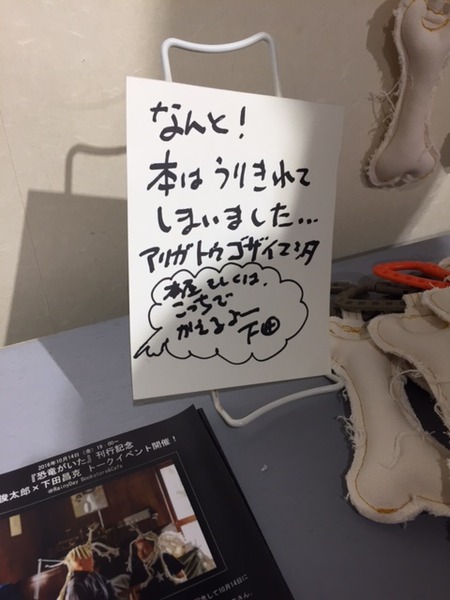 なんと!
本はうりきれて
しまいました...
アリガトウゴザイマシタ
本屋もしくは、
こっちで
かえるよー
下田
2016年10月14日（金）19:00~
『恐竜がいた』刊行記念
俊太郎×下田昌克 トークイベント開催！
@RainyDay Bookstore&Cafe
て10月14日に